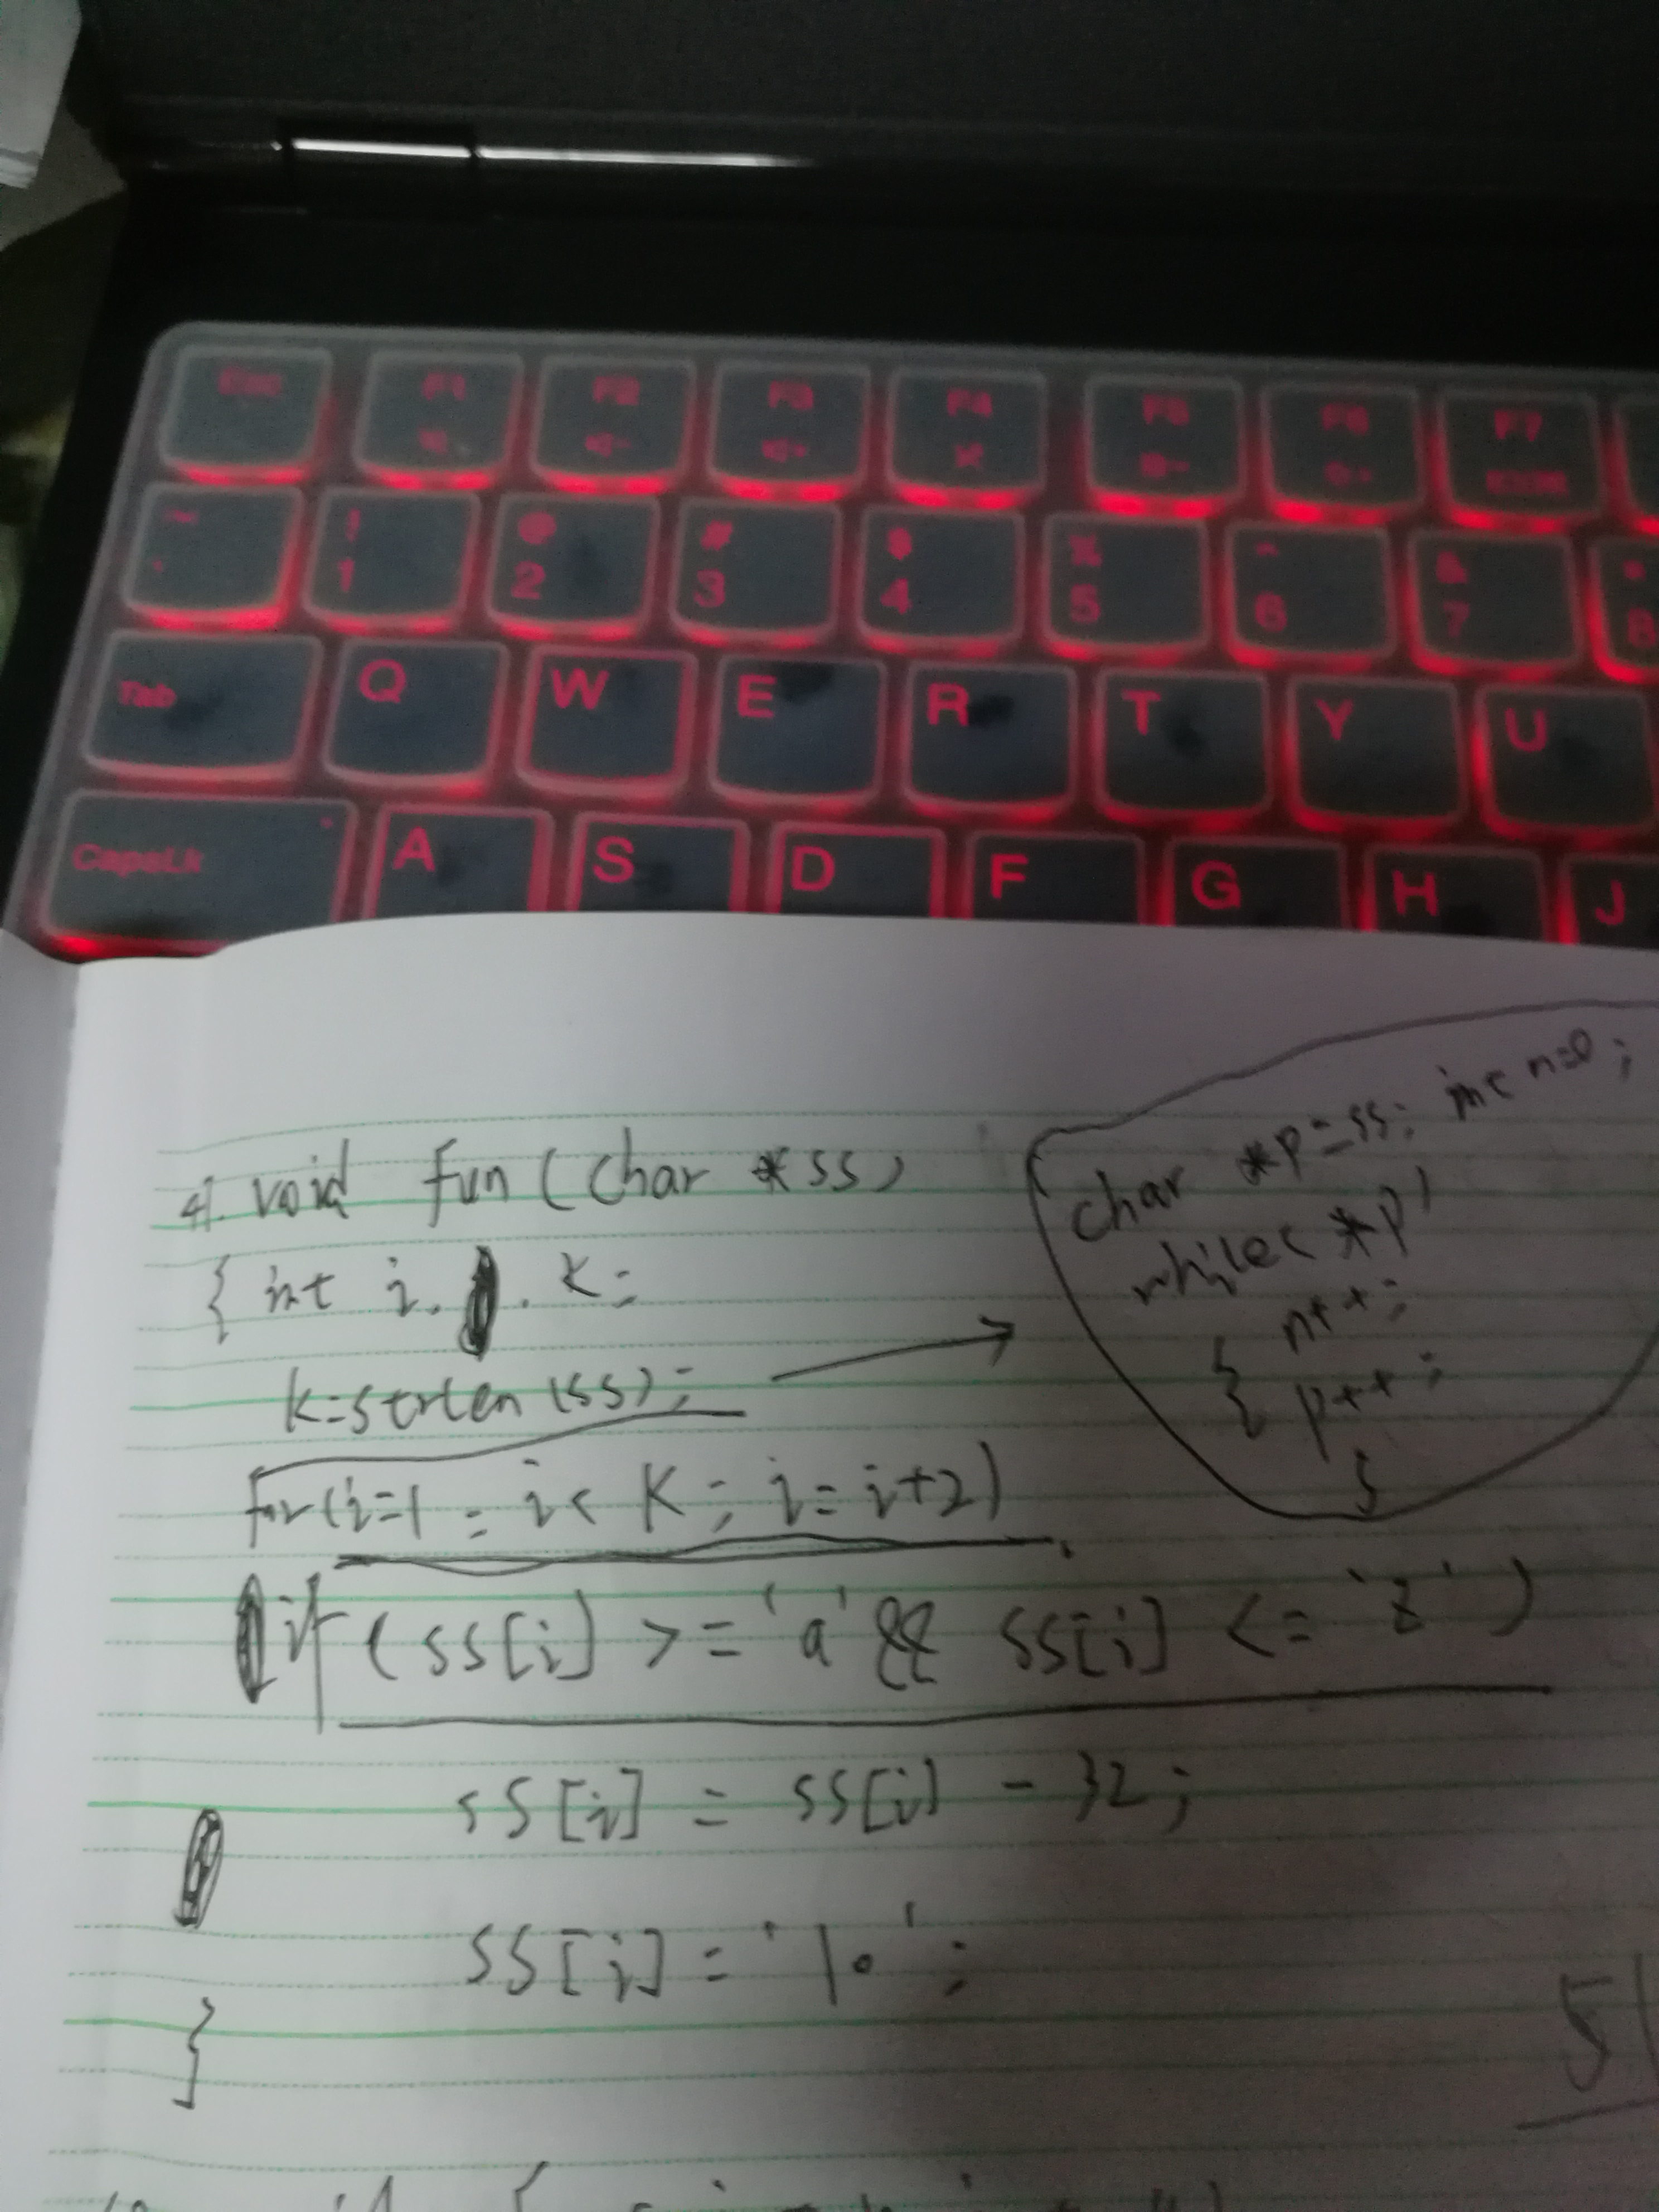 Esc F1 F2 F3 F4 F5 F6 F7
~ ! @ # $ % ^ & *
` 1 2 3 4 5 6 7 8
Tab Q W E R T Y U
CapsLk A S D F G H J
4. void fun (char *ss)
{ int i, , k;
k=strlen (ss);
for(i=1; i< k; i=i+2)
if (ss[i] >= 'a' && ss[i] <= 'z')
ss[i] = ss[i] - 32;
ss[i] = '\0';
}
char *p=ss; int n=0;
while( *p)
{ n++;
p++;
}
51